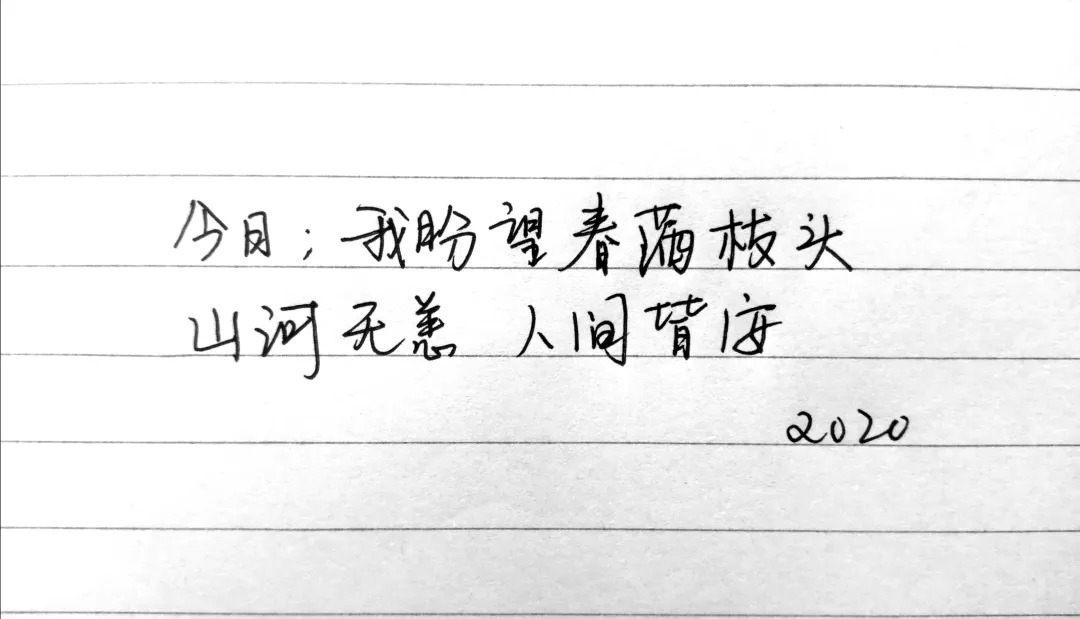 今日；我盼望春满枝头
山河无恙 人间皆安
2020